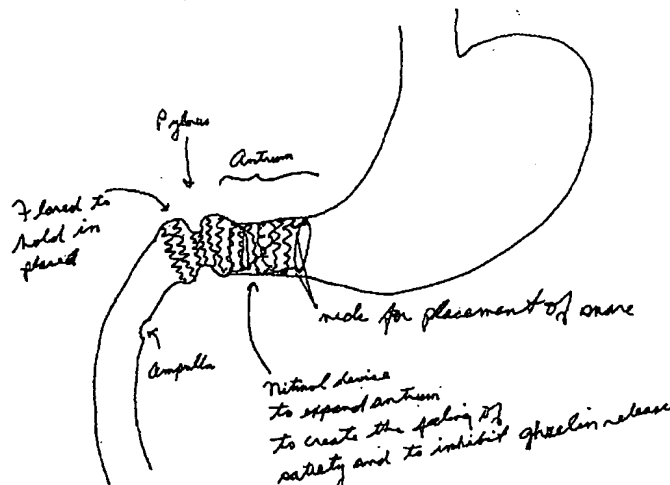 Pylorus
Antrum
Flared to
hold in
placed
for placement of snare
Ampulla
Nitinol device
to expand antrum
to create the feeling of
satiety and to inhibit ghrelin release